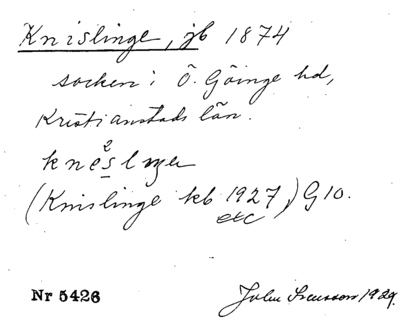 Knislinge, jb 1874
socken i Ö. Göinge hd,
Kristianstads län.
(Knislinge kb 1927,) G 10.
etc
Nr 5426
John Svensson 1929.